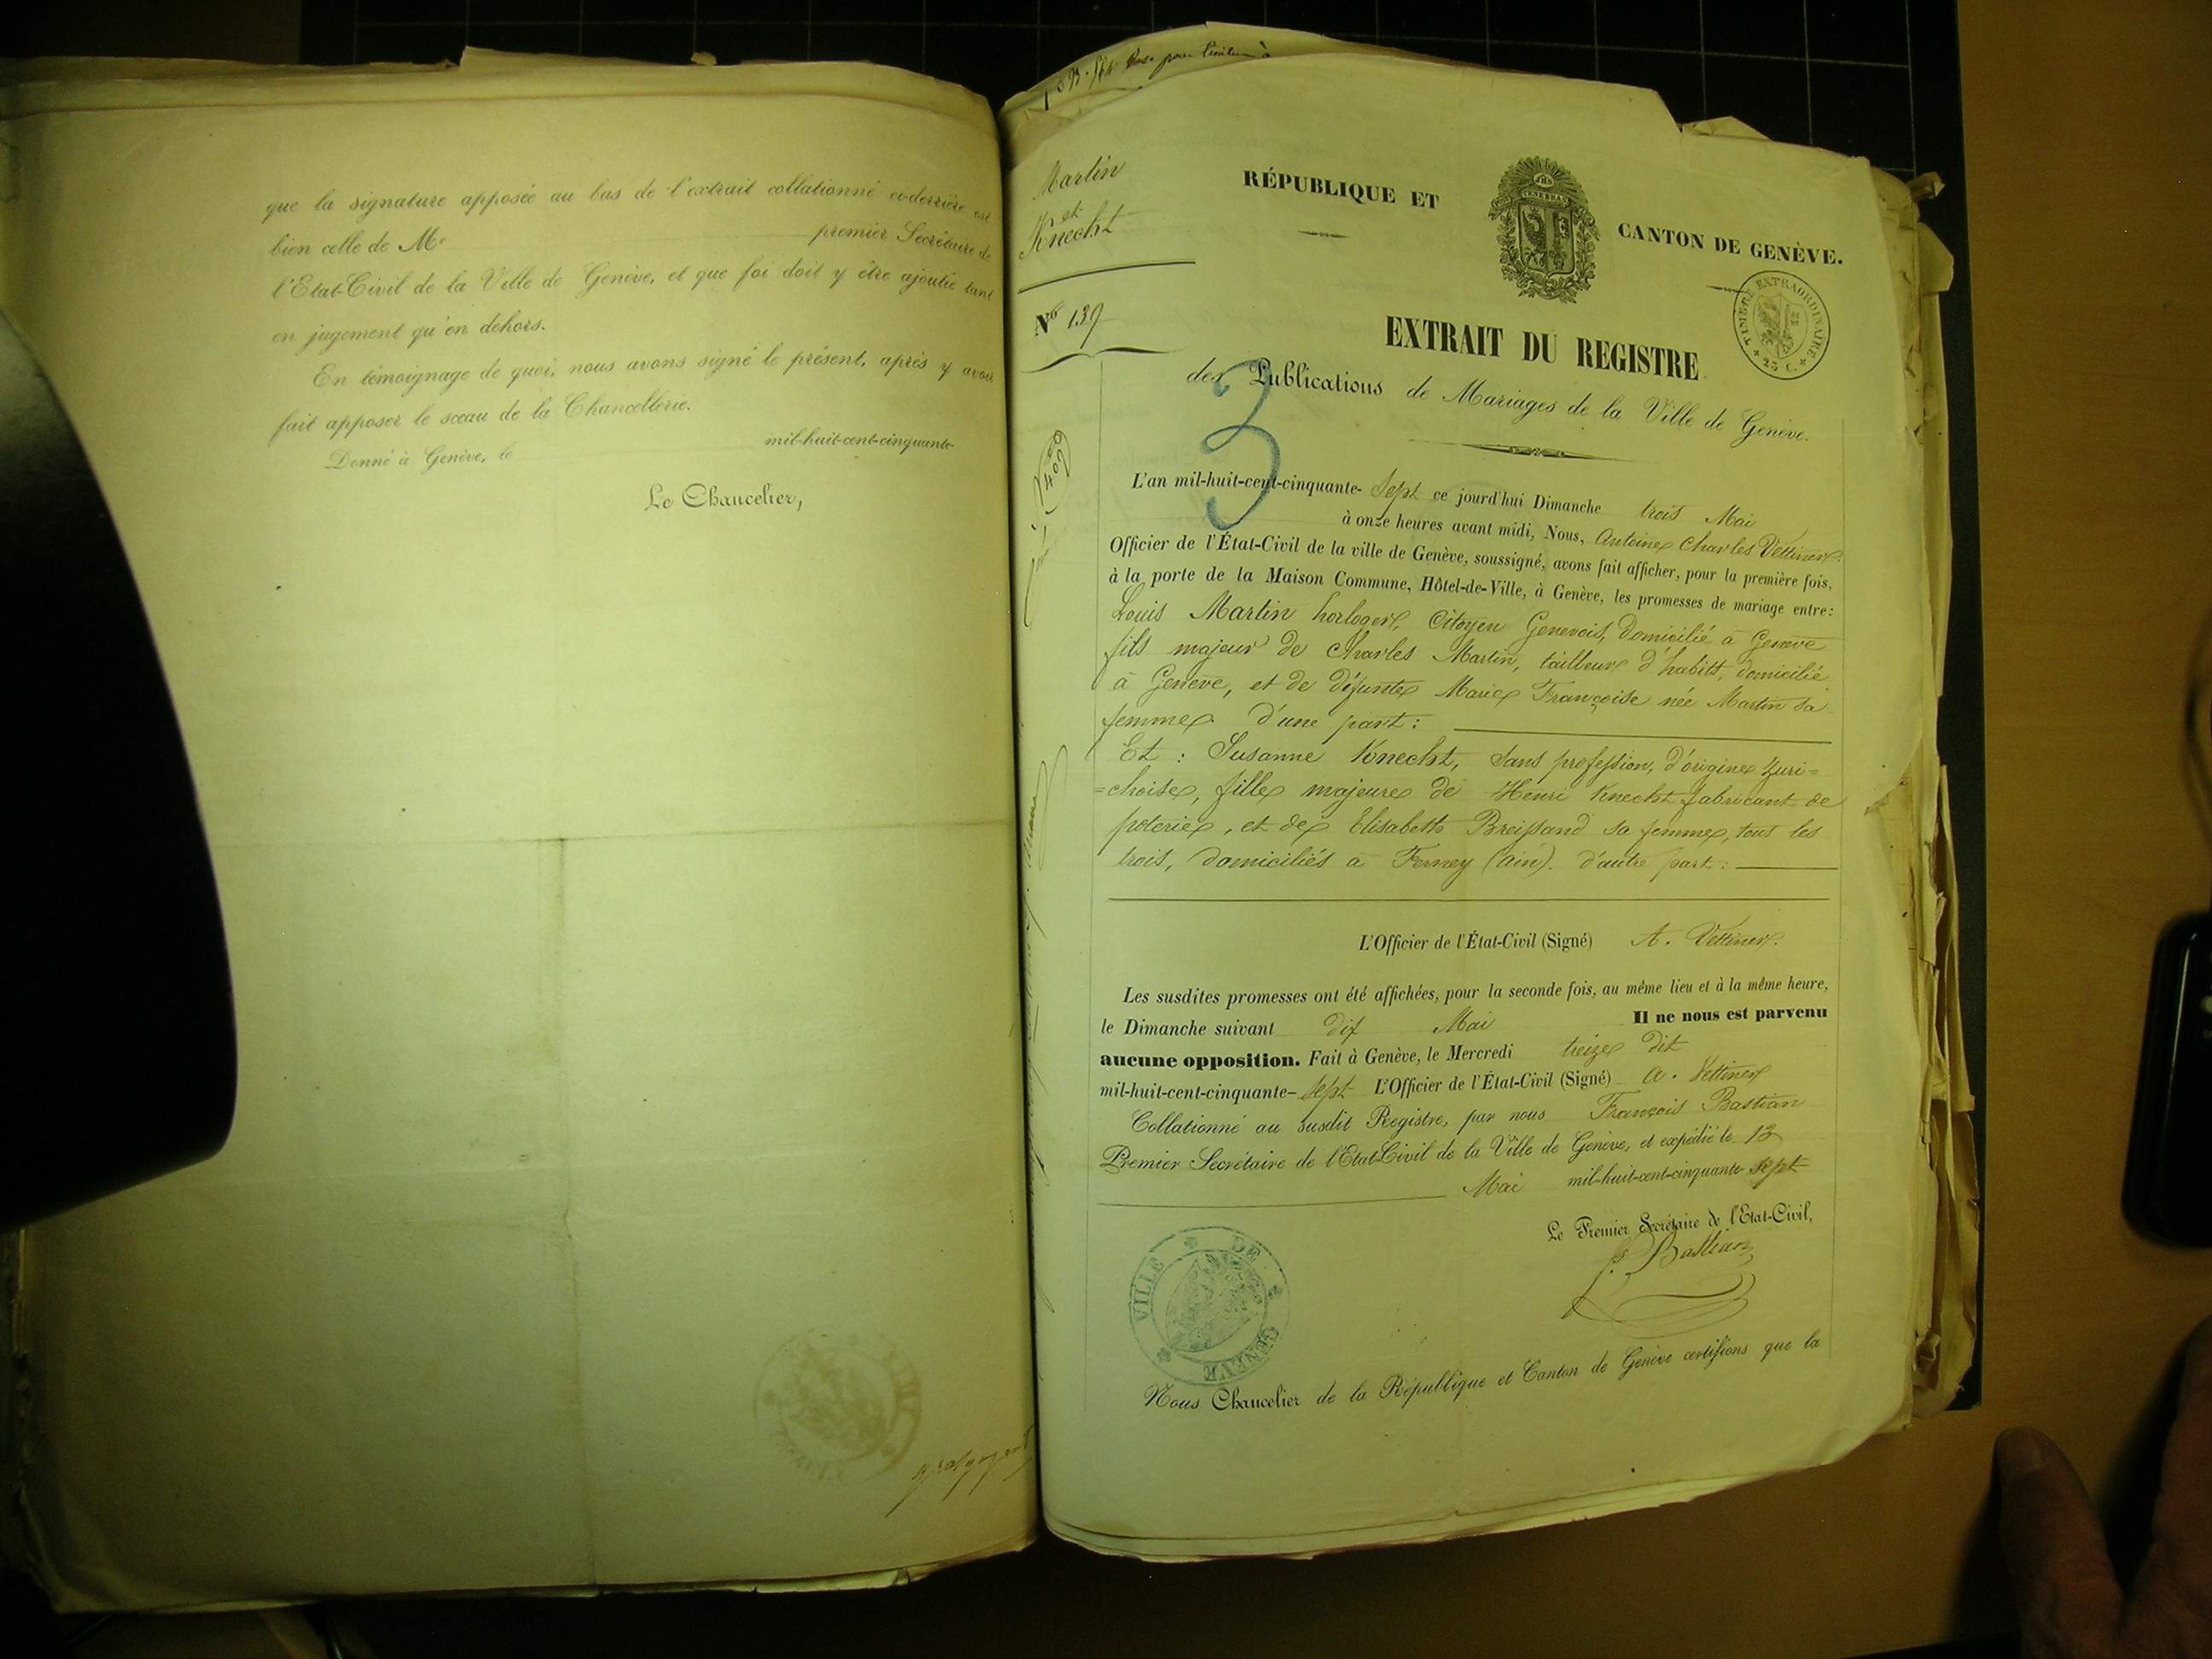 que la signature apposée au bas de l'extrait collationné ci-derrière est
bien celle de Mr premier Secrétaire de
l'Etat-Civil de la Ville de Genève, et que foi doit y être ajoutée tant
en jugement qu'en dehors.
En témoignage de quoi, nous avons signé le présent, après y avoir
fait apposer le sceau de la Chancellerie.
Donné à Genève, le mil-huit-cent-cinquante-
Le Chancelier,
pour
Martin
et
Knecht
No 139
RÉPUBLIQUE ET CANTON DE GENÈVE.
TIMBRE EXTRAORDINAIRE
25 C.
EXTRAIT DU REGISTRE
des Publications de Mariages de la Ville de Genève.
3
L'an mil-huit-cent-cinquante-sept ce jourd'hui Dimanche trois Mai
à onze heures avant midi, Nous, Antoine Charles Vettiner
Officier de l'État-Civil de la ville de Genève, soussigné, avons fait afficher, pour la première fois,
à la porte de la Maison Commune, Hôtel-de-Ville, à Genève, les promesses de mariage entre:
Louis Martin horloger, Citoyen Genevois, domicilié à Genève
fils majeur de Charles Martin, tailleur d'habits, domicilié
à Genève, et de défunte Marie Françoise née Martin sa
femme d'une part:
Et: Susanne Knecht, sans profession, d'origine Zuri=
=choise, fille majeure de Henri Knecht fabricant de
poterie, et de Elisabeth Breissand sa femme, tous les
trois, domiciliés à Ferney (ain). d'autre part:
L'Officier de l'État-Civil (Signé) A. Vettiner.
Les susdites promesses ont été affichées, pour la seconde fois, au même lieu et à la même heure,
le Dimanche suivant dix Mai Il ne nous est parvenu
aucune opposition. Fait à Genève, le Mercredi treize dit
mil-huit-cent-cinquante-sept L'Officier de l'État-Civil (Signé) A. Vettiner
Collationné au susdit Registre, par nous François Bastian
Premier Secrétaire de l'Etat-Civil de la Ville de Genève, et expédié le 13
Mai mil-huit-cent-cinquante-sept
Le Premier Secrétaire de l'Etat-Civil,
f. Bastian
VILLE DE GENÈVE
Nous Chancelier de la République et Canton de Genève certifions que la